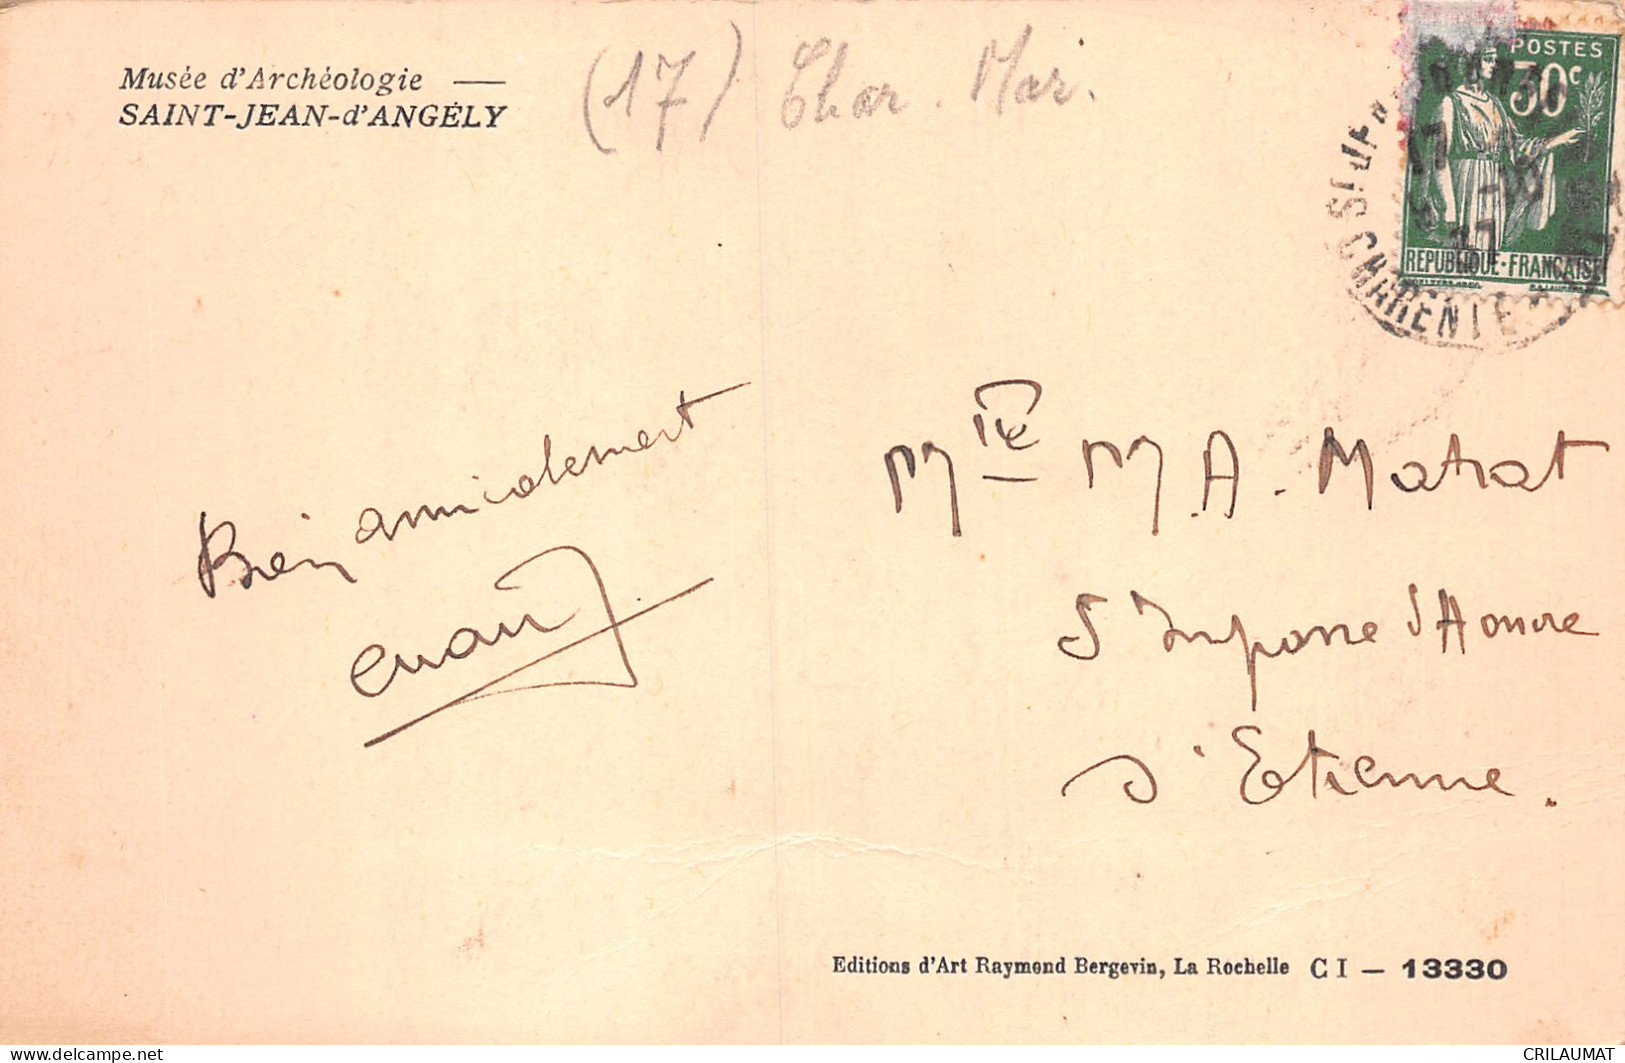 Musée d'Archéologie —
SAINT-JEAN-d'ANGÉLY
(17) Char. Mar.
POSTES
30c
REPUBLIQUE-FRANÇAISE
CHARENTE
Bien amicalement
M A. Matrat
5 Impasse d'
Etienne.
Editions d'Art Raymond Bergevin, La Rochelle CI — 13330
delcampe.net
CRILAUMAT